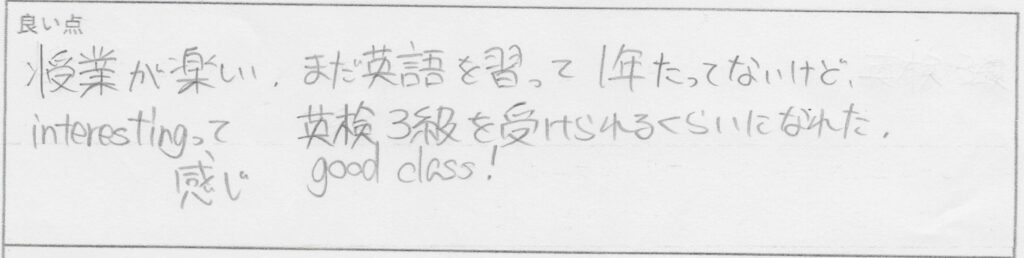 良い点
授業が楽しい、
interestingって
感じ
まだ英語を習って1年たってないけど、
英検3級を受けられるくらいになれた。
good class!